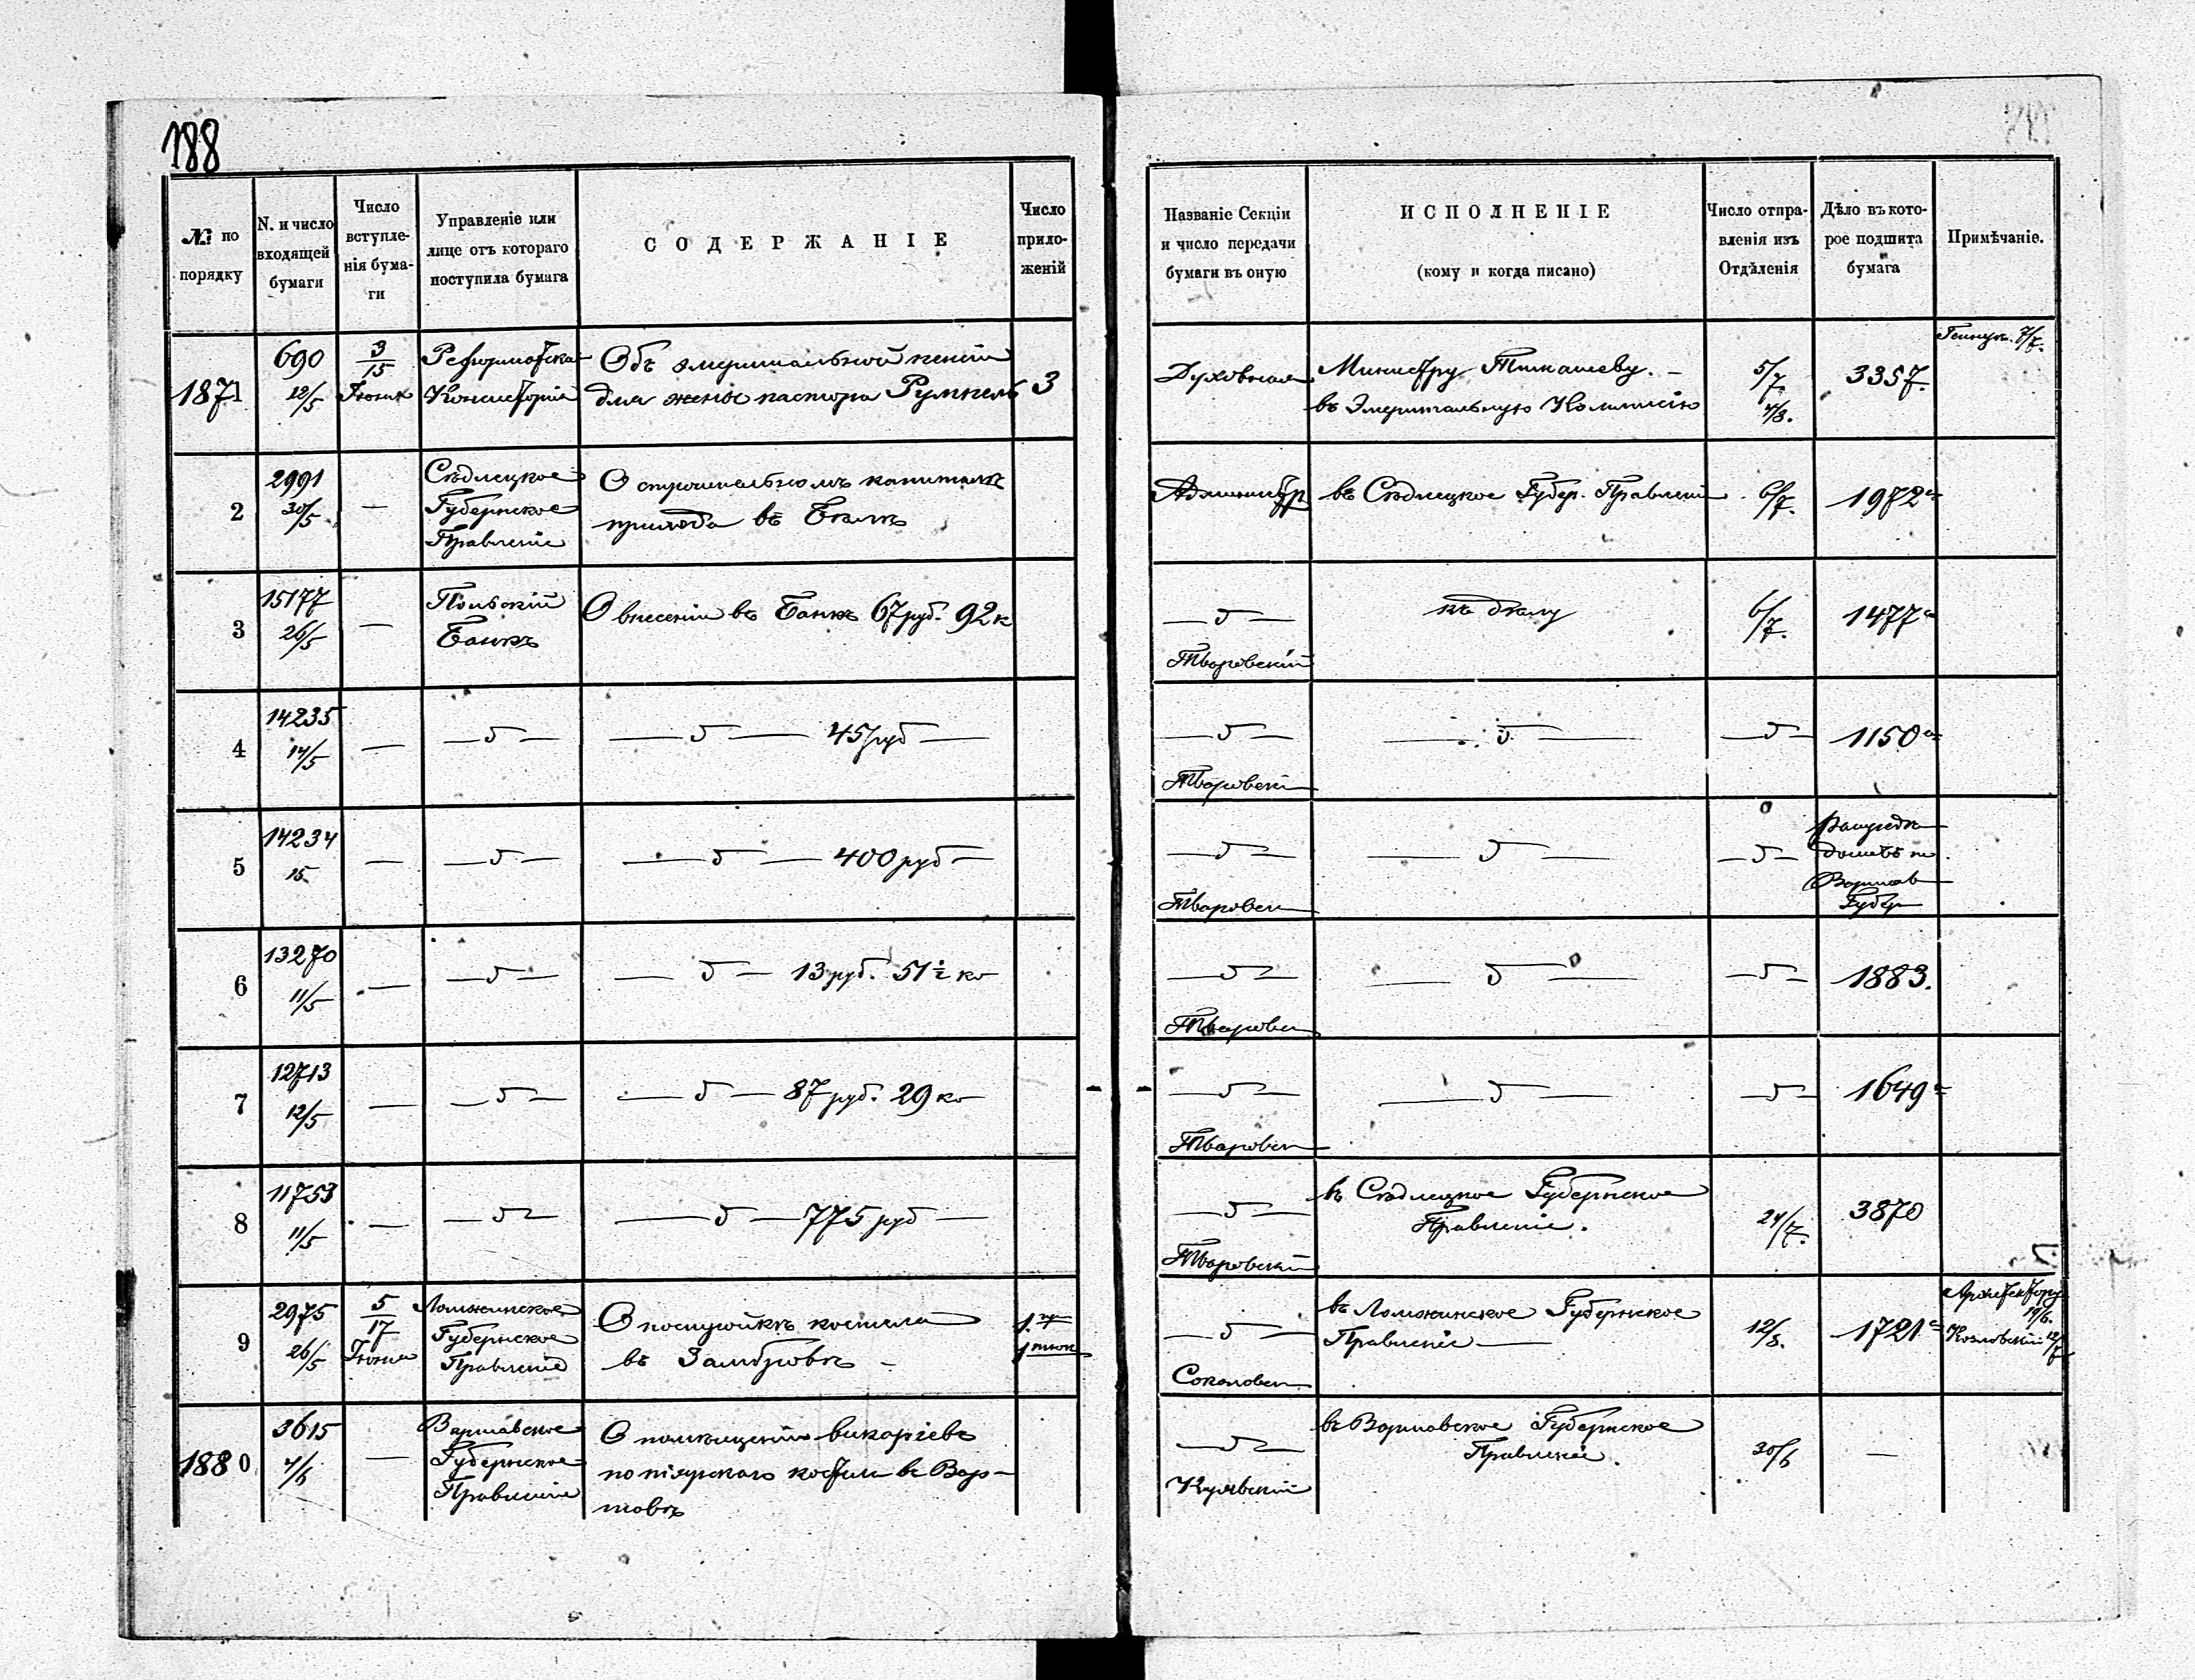 188
№ по порядку
N. и число входящей бумаги
Число вступле-нія бума-ги
Управленіе или лице отъ котораго поступила бумага
СОДЕРЖАНІЕ
Число прило-женій
Названіе Секціи и число передачи бумаги въ оную
ИСПОЛНЕНІЕ
(кому и когда писано)
Число отпра-вленія изъ Отдѣленія
Дѣло въ кото-рое подшита бумага
Примѣчаніе.
1871 690 12/5 3/15 Іюня Реформатска Консисторія Объ эмеритальной пенсіи
для жены пастора Румпель 3
Духовная Министру Тимашеву. —
въ Эмеритальную Коммисію 5/7. 4/8. 3357. 7/7.
2 2991 30/5 — Сѣдлецкое Губернское Правленіе О строительномъ капиталѣ
прихода въ
Администр въ Сѣдлецкое Губер. Правленіе 6/7. 1972
3 15177 26/5 — Польскій Банкъ О внесеніи въ Банкъ 67 руб. 92 к
— 〃 — Тваровскій къ дѣлу 6/7. 1477
4 14235 14/5 — — 〃 — — 〃 — 45 руб —
— 〃 — Тваровскі — 〃 — — 〃 — 1150
5 14234 15 — — 〃 — — 〃 — 400 руб —
— 〃 — Тваровск — 〃 — — 〃 — Варшав Губер
6 13270 11/5 — — 〃 — — 〃 — 13 руб. 51 ½ ко
— 〃 — Тваровск — 〃 — — 〃 — 1883.
7 12713 12/5 — — 〃 — — 〃 — 87 руб. 29 ко
— 〃 — Тваровск — 〃 — — 〃 — 1649
8 11753 11/5 — — 〃 — — 〃 — 775 руб —
— 〃 — Тваровскій въ Сѣдлецкое Губернское
Правленіе. 24/7. 3870
9 2975 26/5 5/17 Іюня Ломжинское Губернское Правленіе О постройкѣ костела
въ Замбровѣ —
— 〃 — Соколовск въ Ломжинское Губернское
Правленіе — 12/8. 1721 Архитектору 19/6. Козловскій 12/7
1880 3615 4/6 — Варшавское Губернское Правленіе О помѣщеніи викаріевъ
по піярскаго костела въ Вар-
шавѣ
— 〃 — Куявскій въ Варшавское Губернское
Правленіе. 30/6 —